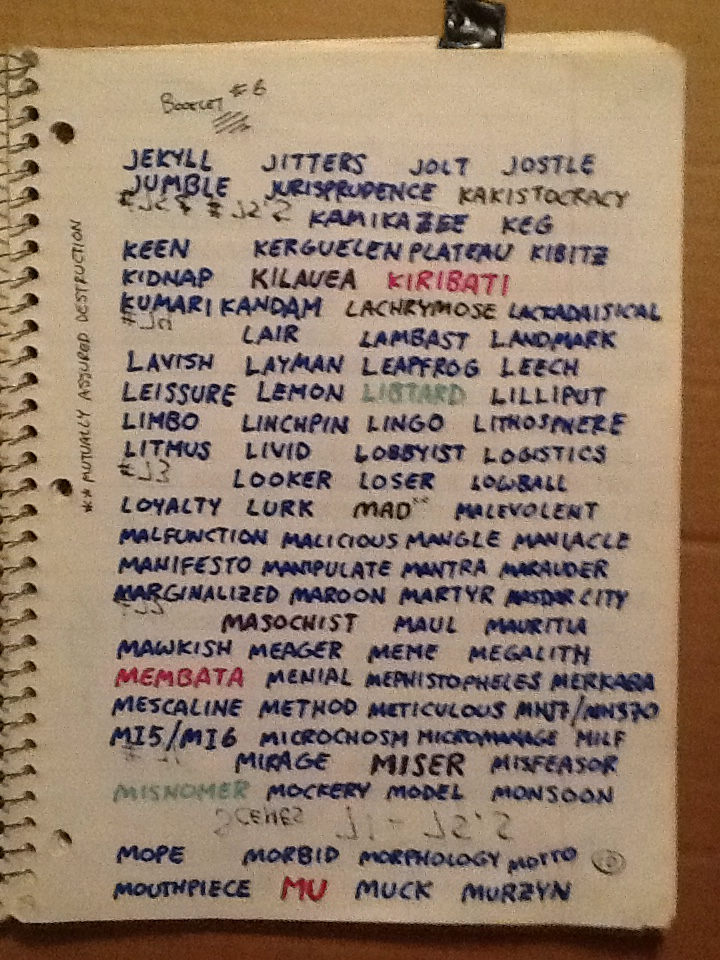 BOOKLET #6
JEKYLL JITTERS JOLT JOSTLE
JUMBLE JURISPRUDENCE KAKISTOCRACY
KAMIKAZEE KEG
KEEN KERGUELEN PLATEAU KIBITZ
KIDNAP KILAUEA KIRIBATI
KUMARI KANDAM LACHRYMOSE LACKADAISICAL
LAIR LAMBAST LANDMARK
LAVISH LAYMAN LEAPFROG LEECH
LEISSURE LEMON LIBTARD LILLIPUT
LIMBO LINCHPIN LINGO LITHOSPHERE
LITMUS LIVID LOBBYIST LOGISTICS
LOOKER LOSER LOWBALL
LOYALTY LURK MAD** MALEVOLENT
MALFUNCTION MALICIOUS MANGLE MANIACLE
MANIFESTO MANIPULATE MANTRA MARAUDER
MARGINALIZED MAROON MARTYR MASDAR CITY
MASOCHIST MAUL MAURITIA
MAWKISH MEAGER MEME MEGALITH
MEMBATA MENIAL MEPHISTOPHELES MERKABA
MESCALINE METHOD METICULOUS MH17/MH370
MI5/MI6 MICROCHOSM MICROMANAGE MILF
MIRAGE MISER MISFEASOR
MISNOMER MOCKERY MODEL MONSOON
MOPE MORBID MORPHOLOGY MOTTO
MOUTHPIECE MU MUCK MURZYN
** MUTUALLY ASSURED DESTRUCTION